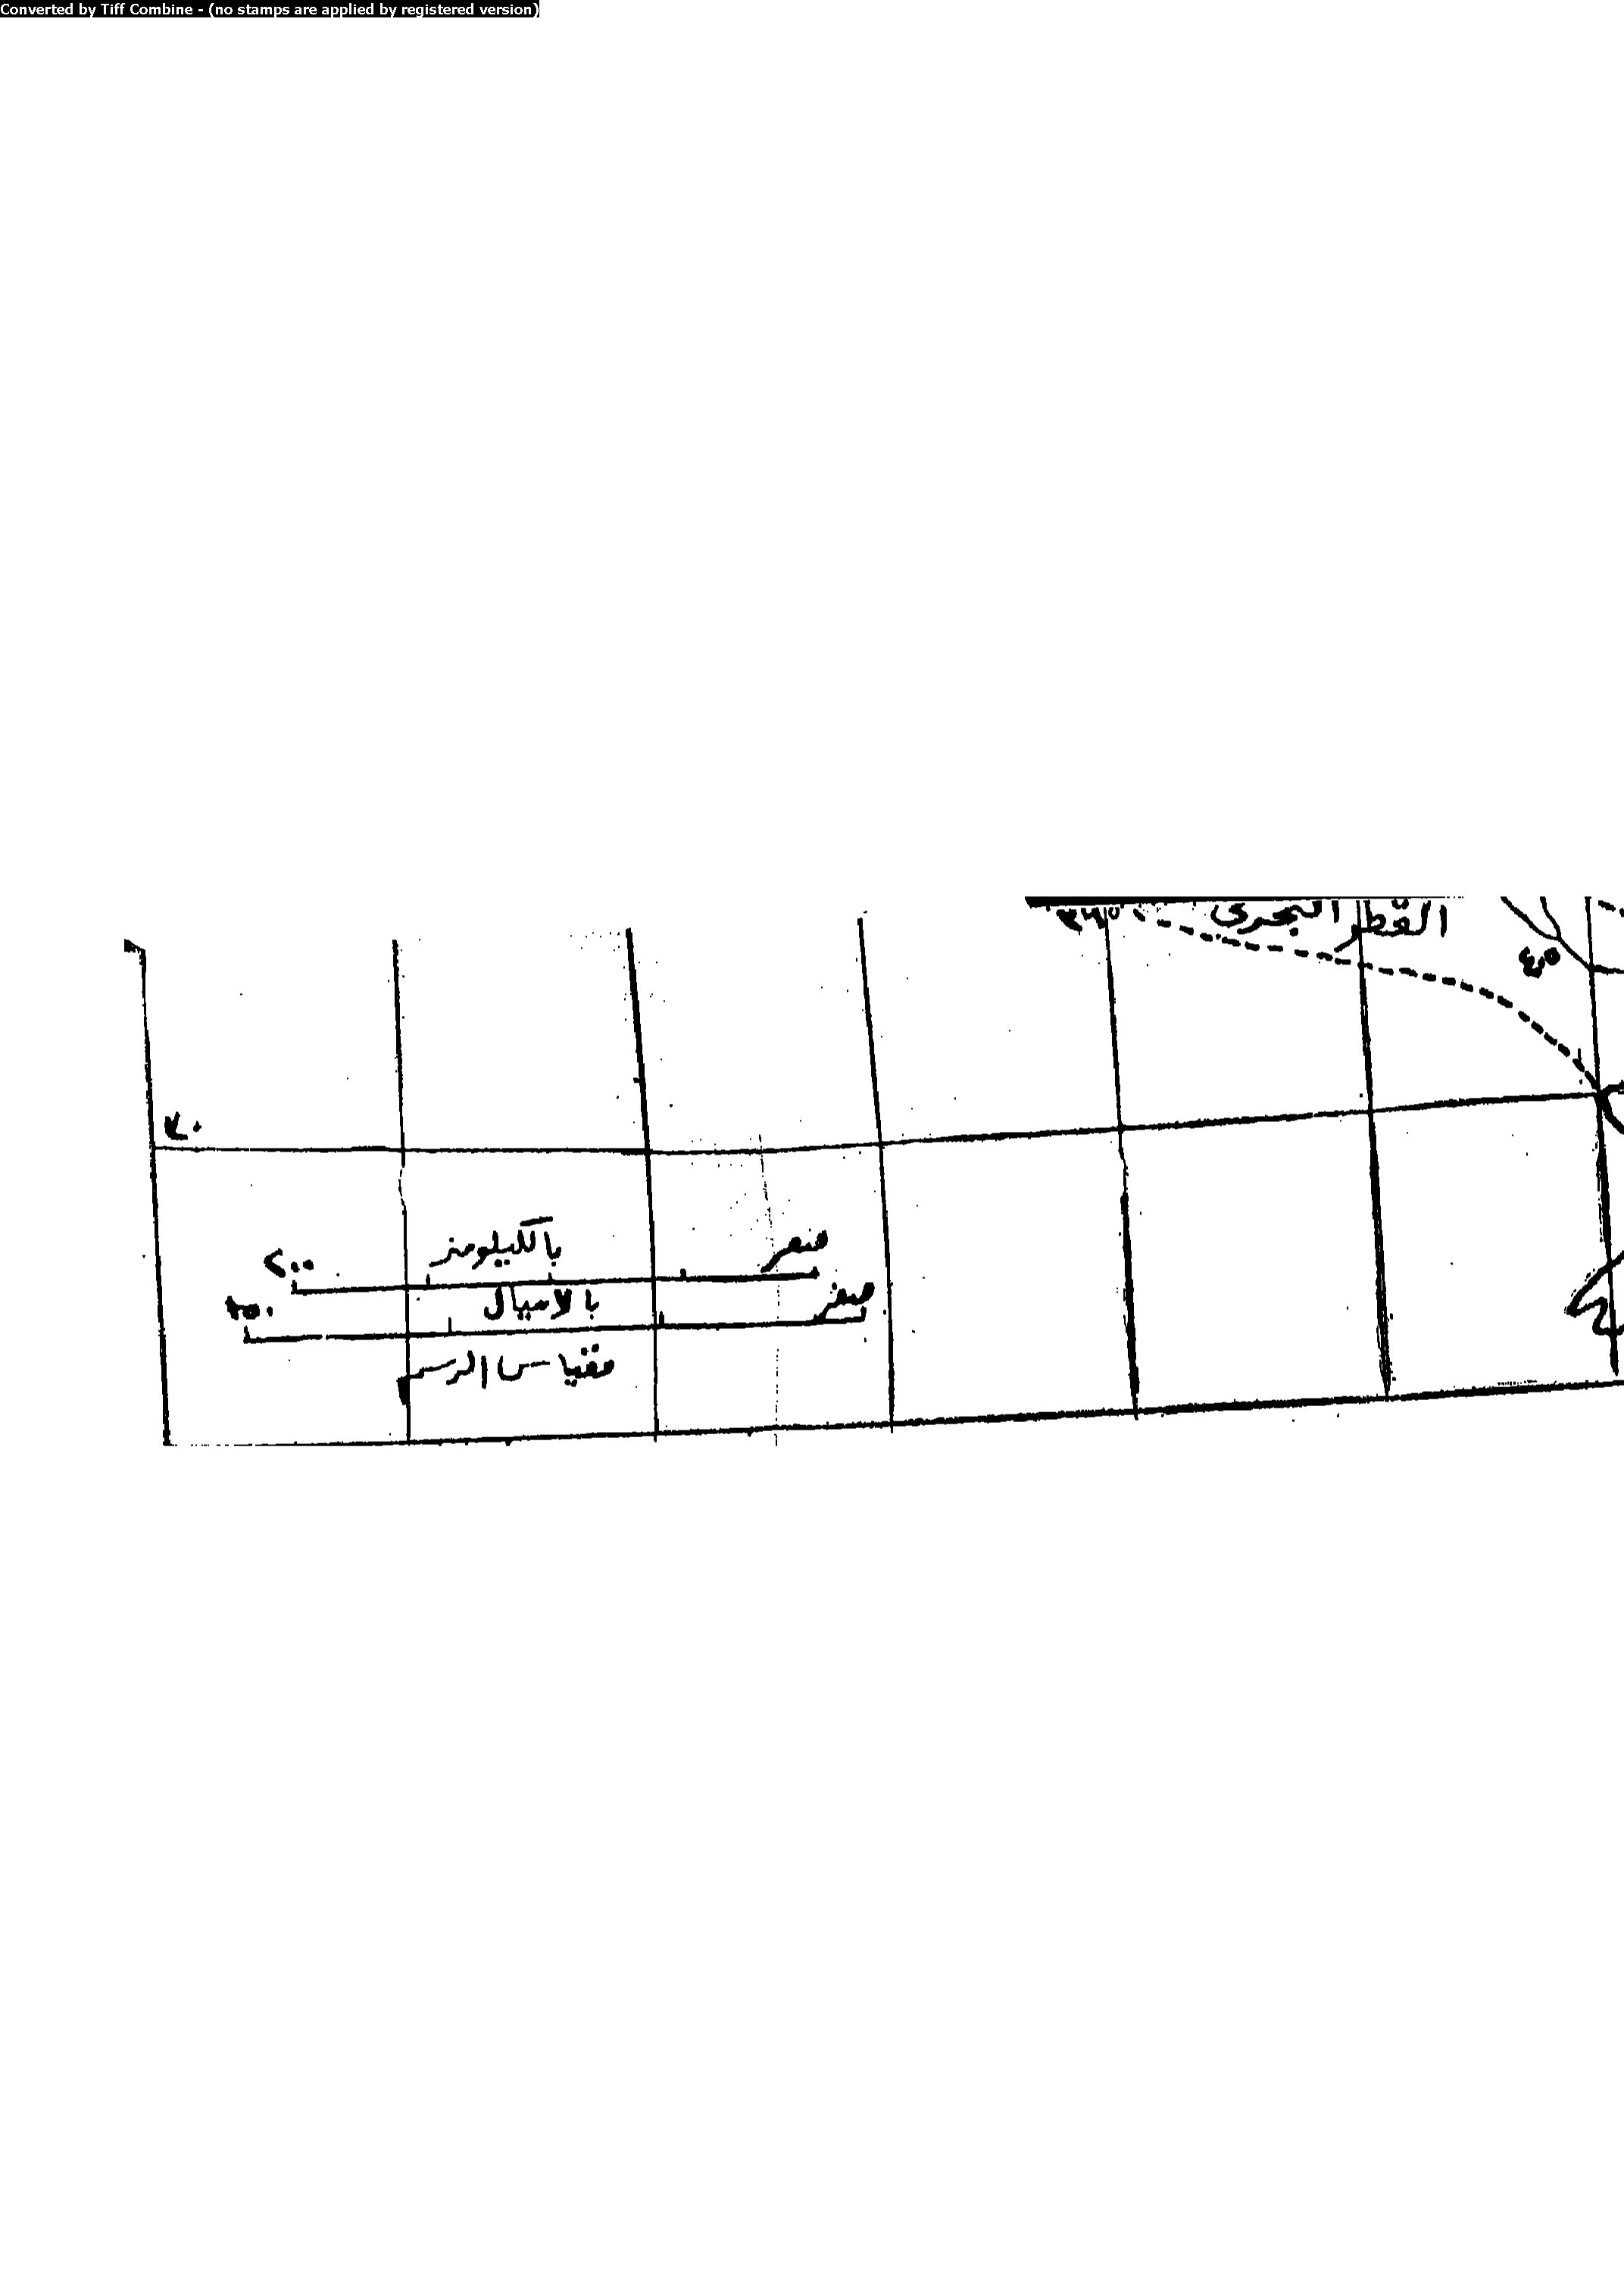 Converted by Tiff Combine - (no stamps are applied by registered version)
القطر البحرى
٤٥
٧٠
صفر بالكيلومتر ٢٠٠
صفر بالاميال
مقياس الرسم